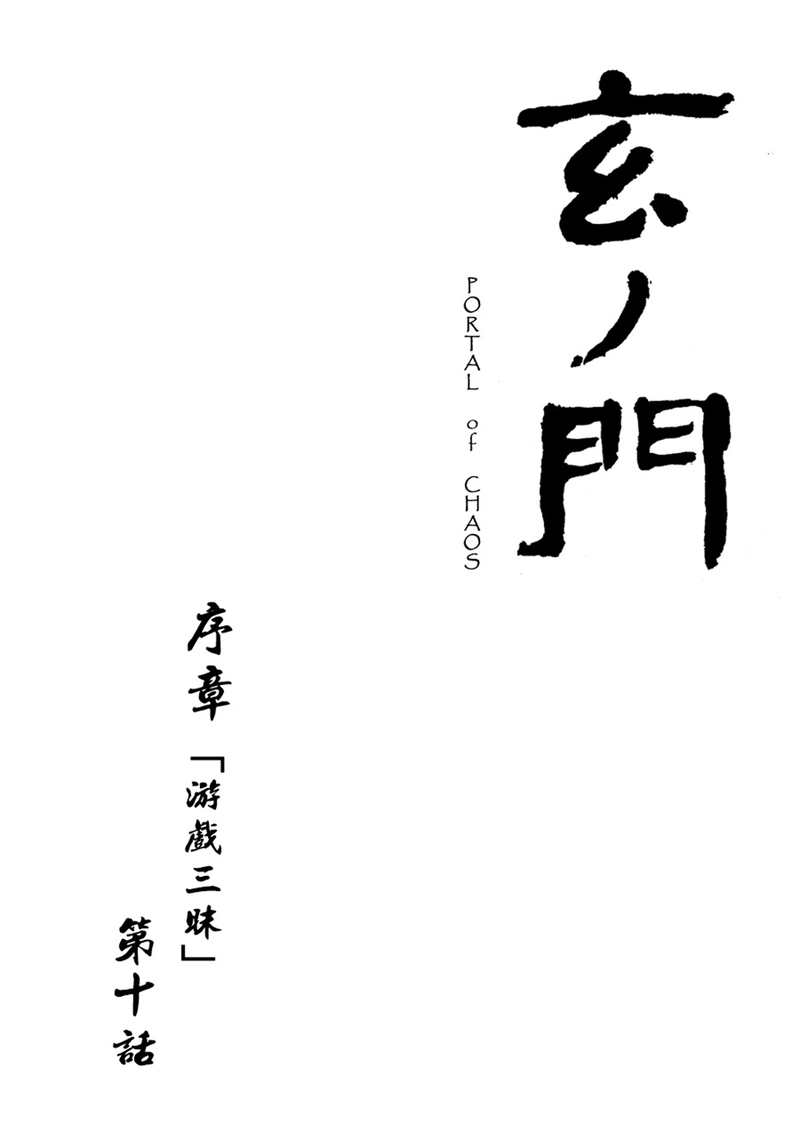 玄ノ門
PORTAL of CHAOS
序章「游戲三昧」
第十話